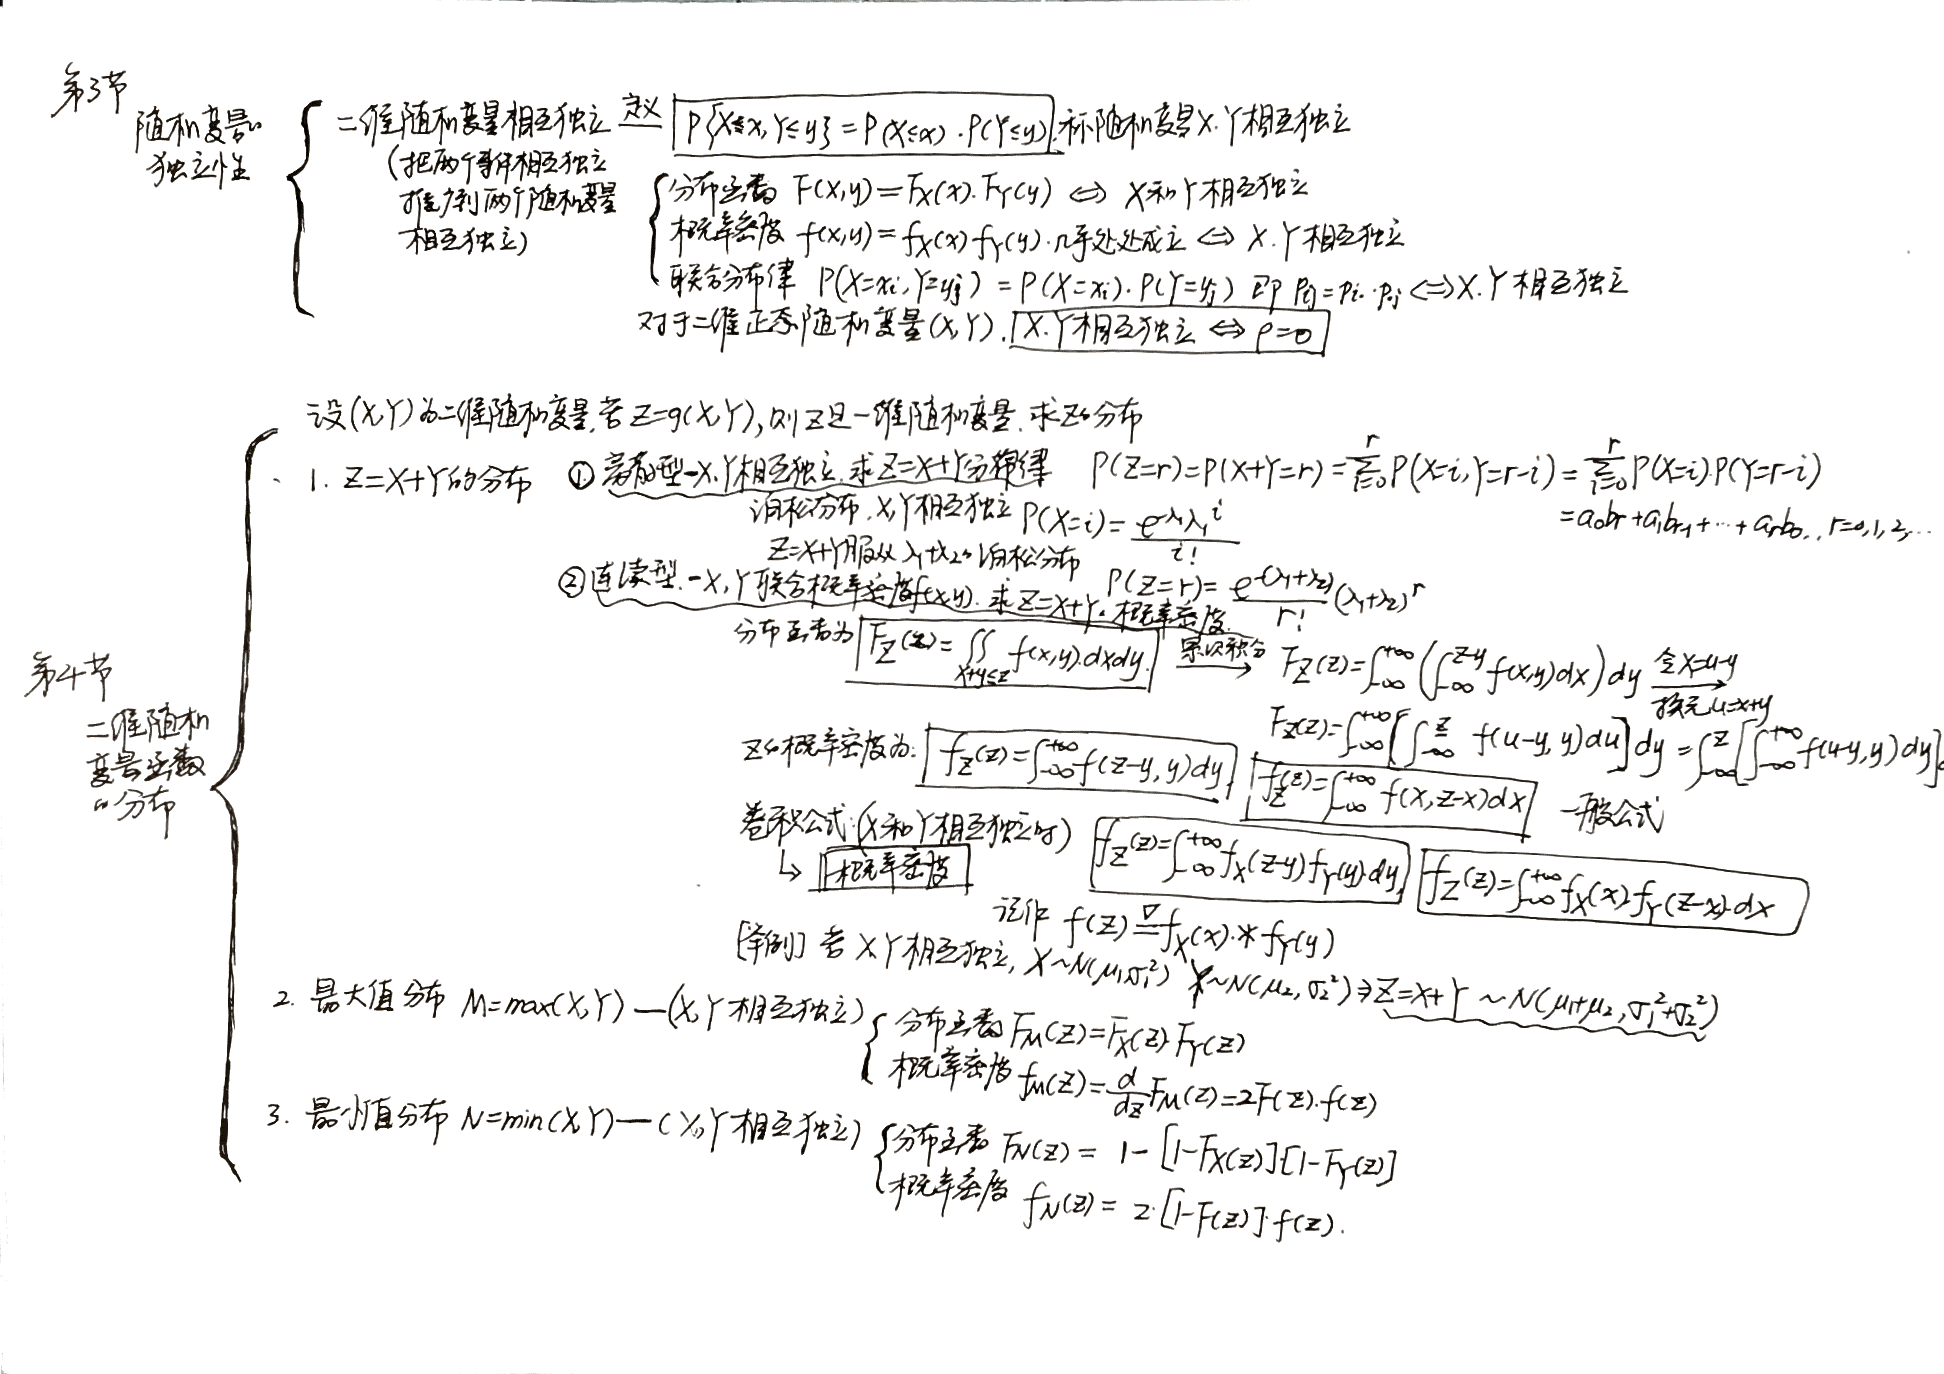 第3节
随机变量的
独立性
二维随机变量相互独立 定义 P{X≤x, Y≤y} = P(X≤x)·P(Y≤y). 称随机变量X.Y相互独立
(把两个事件相互独立
推广到两个随机变量
相互独立)
分布函数 F(x,y)=F_X(x).F_Y(y) ⇔ X和Y相互独立
概率密度 f(x,y)=f_X(x)f_Y(y).几乎处处成立 ⇔ X.Y相互独立
联合分布律 P(X=x_i,Y=y_j) = P(X=x_i).P(Y=y_j) 即 P_ij=P_i.·P_.j ⇔ X.Y相互独立
对于二维正态随机变量(X,Y). X.Y相互独立 ⇔ ρ=0
第4节
二维随机
变量函数
的分布
设(X,Y)为二维随机变量,若Z=g(X,Y),则Z是一维随机变量.求Z的分布
1. Z=X+Y的分布 ① 离散型-X.Y相互独立.求Z=X+Y分布律 P(Z=r)=P(X+Y=r)=Σ_{i=0}^{r}P(X=i,Y=r-i)=Σ_{i=0}^{r}P(X=i).P(Y=r-i)
=a₀b_r+a₁b_{r-1}+…+a_rb₀., r=0,1,2,…
泊松分布.X,Y相互独立 P(X=i)=e^{-λ₁}λ₁^i/i!
Z=X+Y服从λ₁+λ₂的泊松分布 P(Z=r)=e^{-(λ₁+λ₂)}/r! (λ₁+λ₂)^r
② 连续型.-X,Y联合概率密度f(x,y).求Z=X+Y.概率密度.
分布函数为 F_Z(z)=∬_{x+y≤z} f(x,y).dxdy. 累次积分 F_Z(z)=∫_{-∞}^{+∞}(∫_{-∞}^{z-y}f(x,y)dx)dy 令x=u-y 换元u=x+y
F_Z(z)=∫_{-∞}^{+∞}[∫_{-∞}^{z} f(u-y,y)du]dy=∫_{-∞}^{z}[∫_{-∞}^{+∞}f(u-y,y)dy]
Z的概率密度为: f_Z(z)=∫_{-∞}^{+∞}f(z-y,y)dy f_Z(z)=∫_{-∞}^{+∞}f(x,z-x)dx 一般公式
卷积公式:(X和Y相互独立时) f_Z(z)=∫_{-∞}^{+∞}f_X(z-y)f_Y(y).dy, f_Z(z)=∫_{-∞}^{+∞}f_X(x).f_Y(z-x).dx
↳ 概率密度
记作 f(z)≜f_X(x).*f_Y(y)
若X,Y相互独立, X~N(μ₁,σ₁²) Y~N(μ₂,σ₂²)⇒Z=X+Y~N(μ₁+μ₂,σ₁²+σ₂²)
2. 最大值分布 M=max(X,Y)—(X,Y相互独立)
分布函数F_M(z)=F_X(z).F_Y(z)
概率密度f_M(z)=d/dz F_M(z)=2F(z).f(z)
3. 最小值分布 N=min(X,Y)—(X,Y相互独立)
分布函数 F_N(z)= 1-[1-F_X(z)][1-F_Y(z)]
概率密度 f_N(z)= 2·[1-F(z)]·f(z).